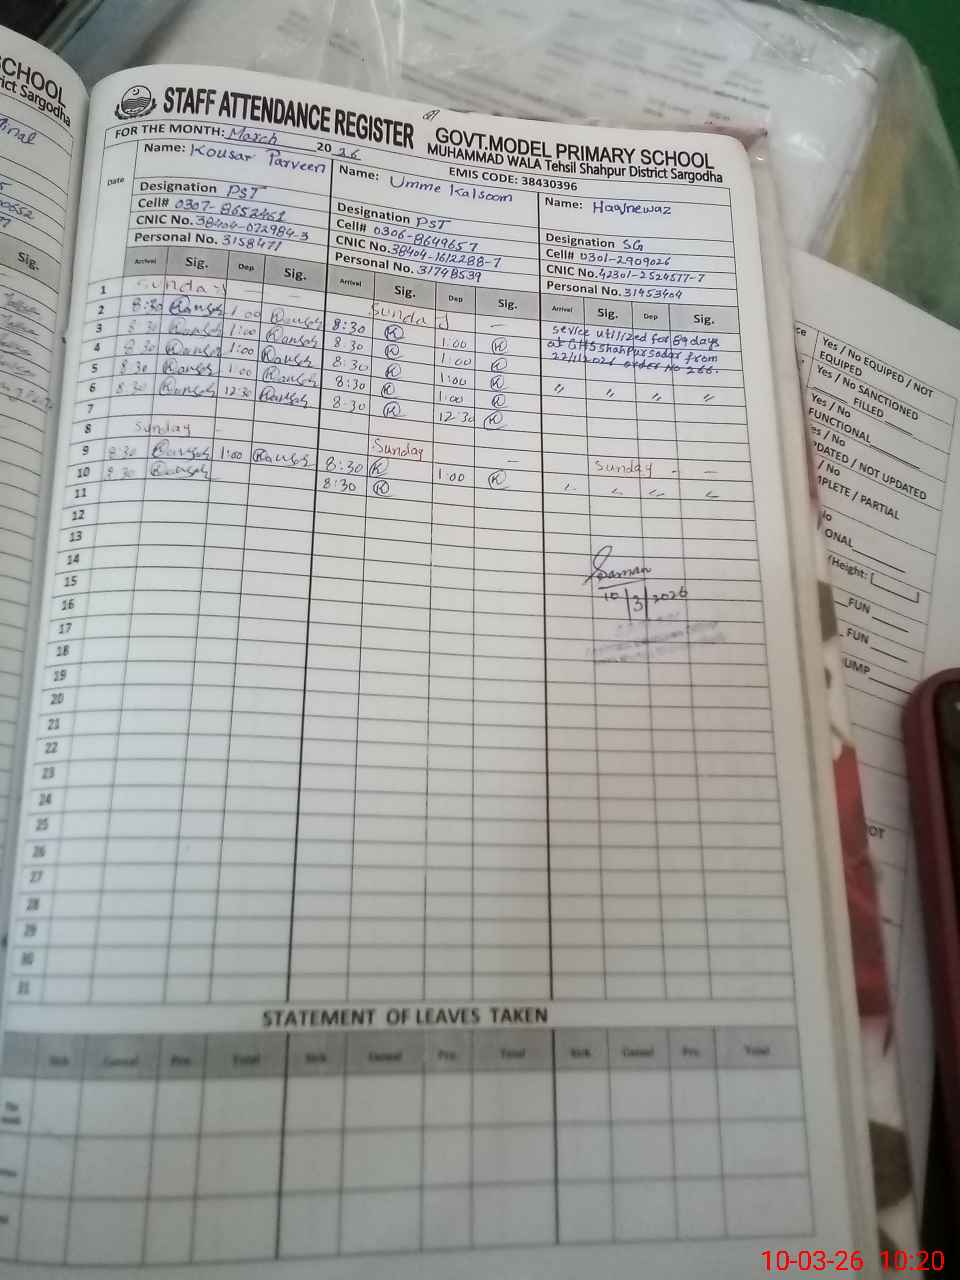 SCHOOL
rict Sargodha
Sig.
STAFF ATTENDANCE REGISTER
GOVT.MODEL PRIMARY SCHOOL
MUHAMMAD WALA Tehsil Shahpur District Sargodha
FOR THE MONTH: March 2026
EMIS CODE: 38430396
Date
Name: Kousar Parveen
Designation PST
Cell# 0307-8652461
CNIC No. 38404-072984-3
Personal No. 3158471
Name: Umme Kalsoom
Designation PST
Cell# 0306-8649657
CNIC No. 38404-1612288-7
Personal No. 31748539
Name: Haqnewaz
Designation SG
Cell# 0301-2909026
CNIC No. 42301-2524577-7
Personal No. 31453404
Arrival Sig. Dep Sig. Arrival Sig. Dep Sig. Arrival Sig. Dep Sig.
1 Sunday - - Sunday -
2 8:30 Kausar 1:00 Kausar 8:30 K 1:00 K
sevice utilized for 89 days
at GHS Shahpur sadar from
order No 266.
3 8:30 Kausar 1:00 Kausar 8:30 K 1:00 K
4 8:30 Kausar 1:00 Kausar 8:30 K 1:00 K
5 8:30 Kausar 1:00 Kausar 8:30 K 1:00 K
6 8:30 Kausar 12:30 Kausar 8:30 K 12:30 K
7
8 Sunday - Sunday - Sunday - -
9 8:30 Kausar 1:00 Kausar 8:30 K 1:00 K
10 8:30 Kausar 8:30 K
11
12
13
14
15
16
17
18
19
20
21
22
23
24
25
26
27
28
29
30
31
Saman
10/3/2026
STATEMENT OF LEAVES TAKEN
Sick Casual Pre. Total Sick Casual Pre. Total Sick Casual Pre. Total
Yes / No EQUIPED / NOT
EQUIPED
Yes / No SANCTIONED
FILLED
Yes / No
FUNCTIONAL
es / No
PDATED / NOT UPDATED
/ No
MPLETE / PARTIAL
No
ONAL
(Height: [ ]
FUN
FUN
UMP
OT
10-03-26 10:20